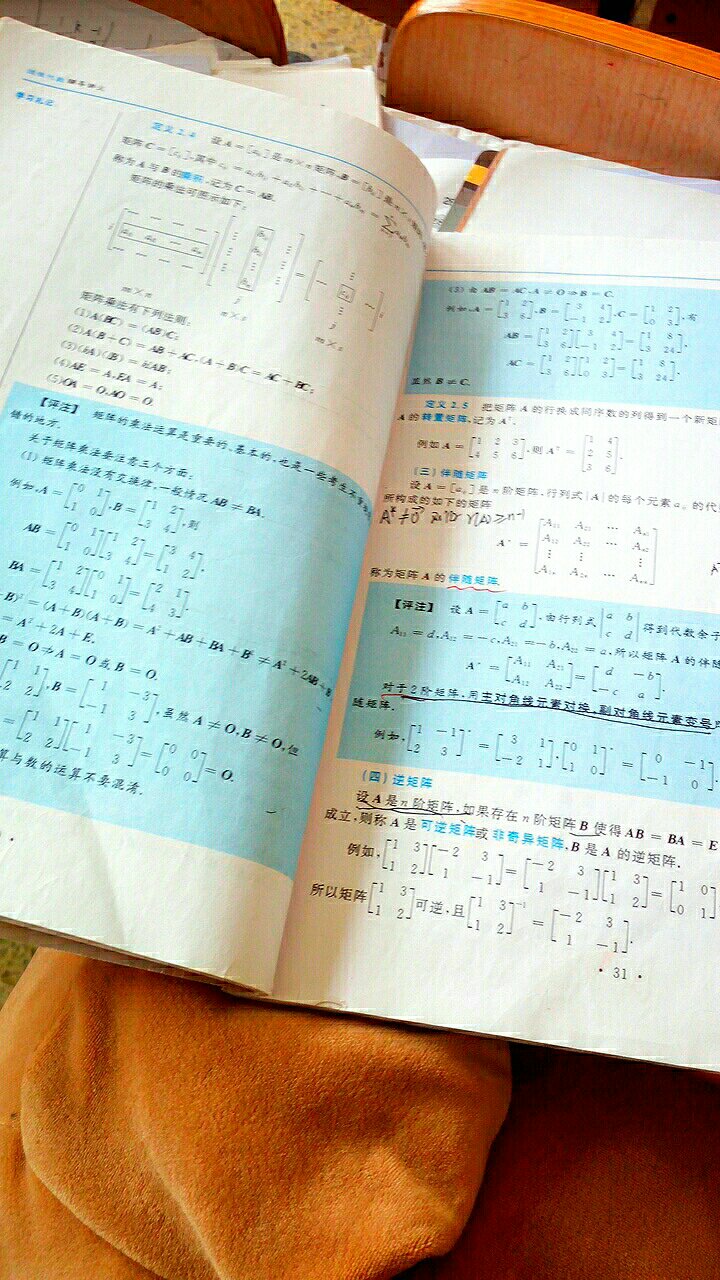 线性代数辅导讲义
学习札记
定义 2.4 设 A = [aᵢⱼ] 是 m×n 矩阵, B = [bᵢⱼ] 是 n×s
矩阵 C = [cᵢⱼ], 其中 cᵢⱼ = aᵢ₁b₁ⱼ + aᵢ₂b₂ⱼ + ⋯ + aᵢₙbₙⱼ = ∑aᵢₖbₖⱼ
称为 A 与 B 的乘积, 记为 C = AB.
矩阵的乘法可图示如下:
m×n m×s
矩阵乘法有下列法则:
(1) A(BC) = (AB)C;
(2) A(B+C) = AB + AC, (A+B)C = AC + BC;
(4) AE = A, EA = A;
(5) OA = O, AO = O.
【评注】 矩阵的乘法运算是重要的、基本的, 也是一些考生不
错的地方.
关于矩阵乘法要注意三个方面:
(1) 矩阵乘法没有交换律, 一般情况 AB ≠ BA.
例如, A = [0 1; 1 0], B = [1 2; 3 4], 则
AB = [0 1; 1 0][1 2; 3 4] = [3 4; 1 2],
BA = [1 2; 3 4][0 1; 1 0] = [2 1; 4 3].
B)² = (A+B)(A+B) = A² + AB + BA + B² ≠ A² + 2AB + B
= A² + 2A + E.
B = O ⇏ A = O 或 B = O.
[1 1; 2 2], B = [1 -3; -1 3], 虽然 A ≠ O, B ≠ O, 但
= [1 1; 2 2][1 -3; -1 3] = [0 0; 0 0] = O.
算与数的运算不要混淆.
(3) 由 AB = AC, A ≠ O ⇏ B = C.
例如, A = [1 2; 3 6], B = [3 4; -1 2], C = [1 2; 0 3], 有
AB = [1 2; 3 6][3 4; -1 2] = [1 8; 3 24],
AC = [1 2; 3 6][1 2; 0 3] = [1 8; 3 24],
显然 B ≠ C.
定义 2.5 把矩阵 A 的行换成同序数的列得到一个新矩
A 的转置矩阵, 记为 Aᵀ.
例如 A = [1 2 3; 4 5 6], 则 Aᵀ = [1 4; 2 5; 3 6].
(三) 伴随矩阵
设 A = [aᵢⱼ] 是 n 阶矩阵, 行列式 |A| 的每个元素 aᵢⱼ 的代
所构成的如下的矩阵
A* = [A₁₁ A₂₁ ⋯ Aₙ₁; A₁₂ A₂₂ ⋯ Aₙ₂; ⋮ ⋮ ⋮; A₁ₙ A₂ₙ ⋯ Aₙₙ]
称为矩阵 A 的伴随矩阵.
【评注】 设 A = [a b; c d], 由行列式 |a b; c d| 得到代数余子
A₁₁ = d, A₁₂ = -c, A₂₁ = -b, A₂₂ = a, 所以矩阵 A 的伴随
A* = [A₁₁ A₂₁; A₁₂ A₂₂] = [d -b; -c a].
对于 2 阶矩阵, 用主对角线元素对换, 副对角线元素变号
随矩阵.
例如, [1 -1; 2 3]* = [3 1; -2 1], [0 1; 1 0]* = [0 -1; -1 0].
(四) 逆矩阵
设 A 是 n 阶矩阵, 如果存在 n 阶矩阵 B 使得 AB = BA = E
成立, 则称 A 是可逆矩阵或非奇异矩阵, B 是 A 的逆矩阵.
例如, [1 3; 1 2][-2 3; 1 -1] = [-2 3; 1 -1][1 3; 1 2] = [1 0; 0 1]
所以矩阵 [1 3; 1 2] 可逆, 且 [1 3; 1 2]⁻¹ = [-2 3; 1 -1].
· 31 ·